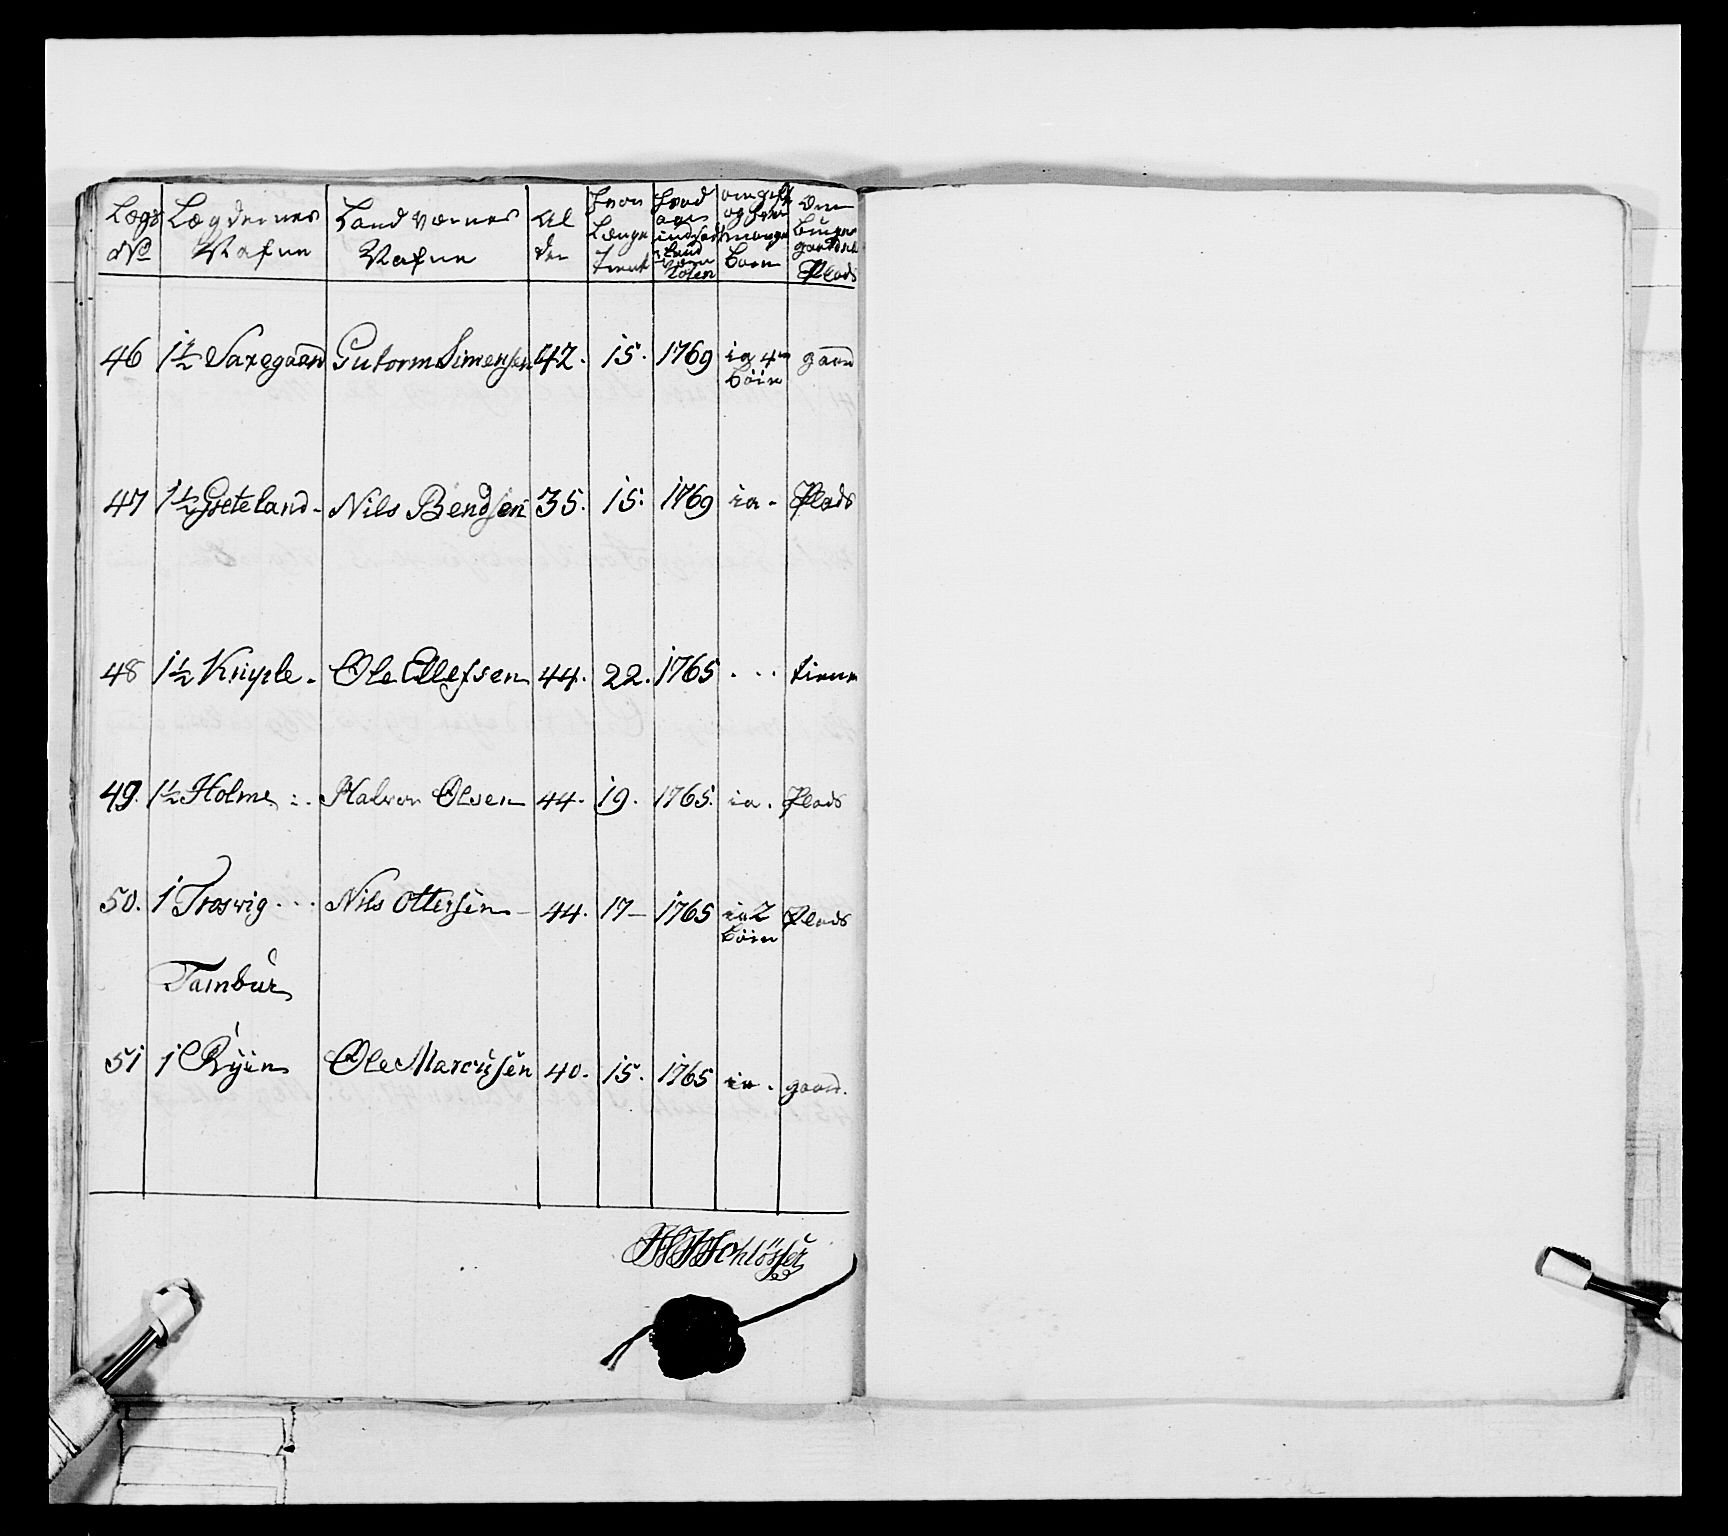 Lægs No | Lægdernes Nafne | Land værnes Nafne | Al der | Hvor Længe tient | Hvad aar indsat i Land værn | om gift og hvor mange børn | Om Bruger gaard el Plads
46 | 1½ Saxegaard | Gutorm Simensen | 42. | 15. | 1769 | ia 4 børn | gaard
47 | 1½ Greteland - | Nils Bendsen | 35. | 15. | 1769 | ia - | Plads
48 | 1½ Knyple - | Ole Ellefsen | 44. | 22. | 1765 | . . . | tiener
49. | 1½ Holme :. | Halvor Olsen | 44. | 19. | 1765. | ia . | Plads
50. | 1 Trosvig . . . | Nils Ottersen - | 44. | 17 - | 1765 | ia 2 børn | Plads
Tambur
51 | 1 Ryen | Ole Marcusen | 40. | 15. | 1765 | ia . | gaard.
Schlösser